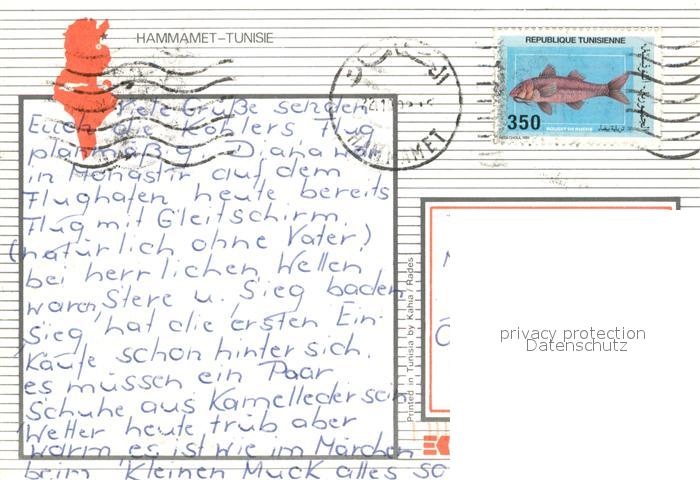 HAMMAMET-TUNISIE
REPUBLIQUE TUNISIENNE
350
ROUGET DE RUSSIE
HAMMAMET
Viele Grüße senden
Euch die Köhlers Flug
planmäßig. Diana war
in Monastir auf dem
Flughafen heute bereits
Flug mit Gleitschirm.
(natürlich ohne Vater)
bei herrlichen Wellen
waren Stere u. Sieg baden
Sieg, hat die ersten Ein-
käufe schon hinter sich.
es müssen ein Paar
Schuhe aus Kamelleder sein
Wetter heute trüb aber
warm es ist wie im Märchen
beim Kleinen Muck alles so
Printed in Tunisia by Kahia / Rades
privacy protection
Datenschutz